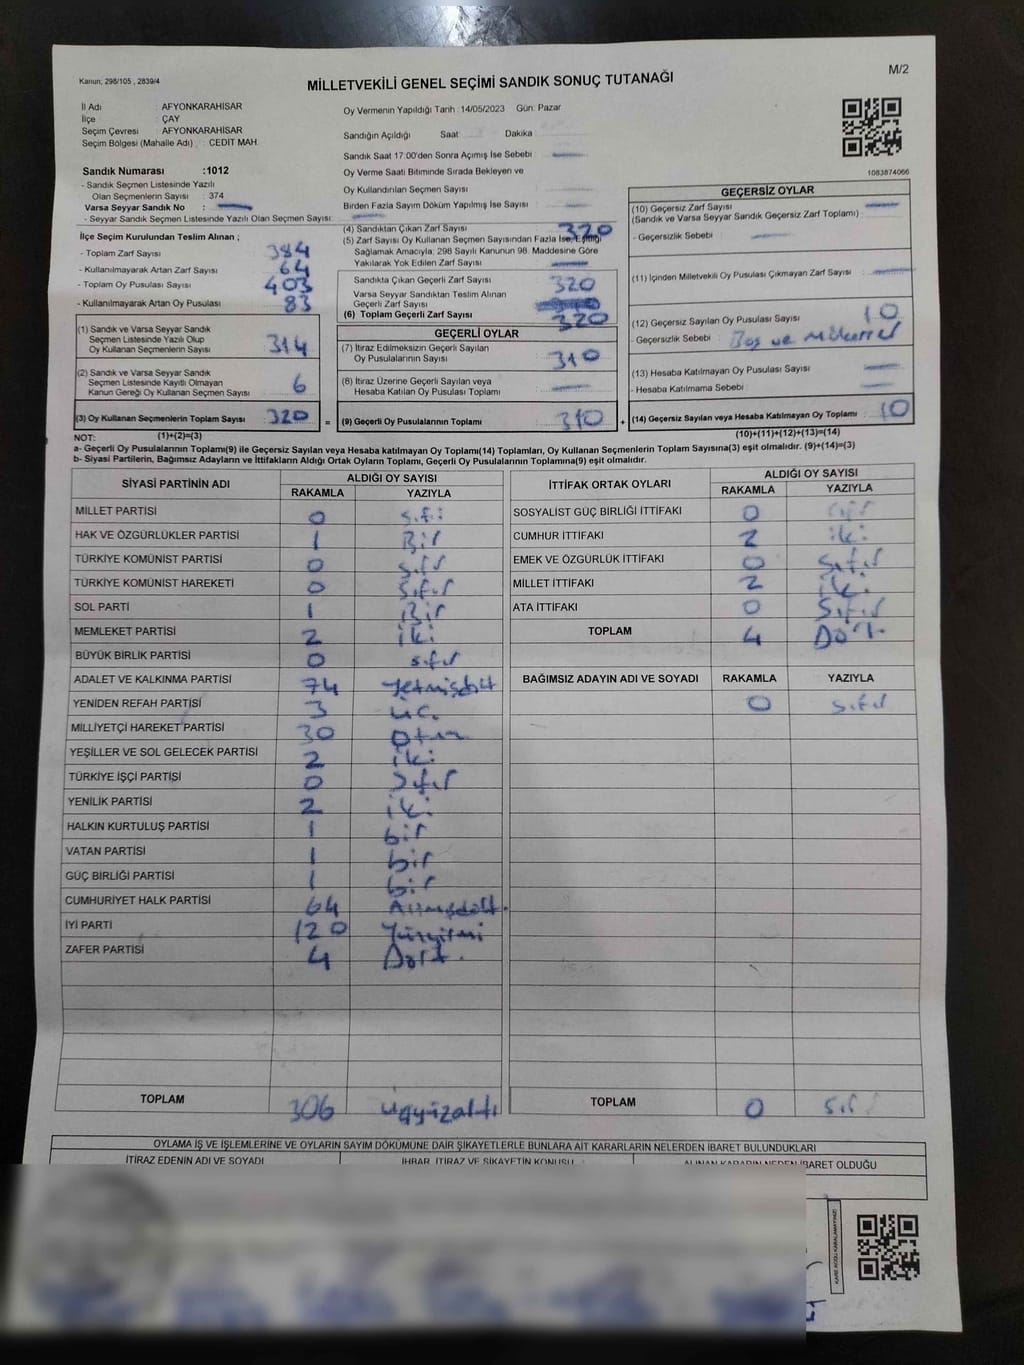 Kanun: 298/105 , 2839/4
MİLLETVEKİLİ GENEL SEÇİMİ SANDIK SONUÇ TUTANAĞI
M/2
İl Adı : AFYONKARAHİSAR
İlçe : ÇAY
Seçim Çevresi : AFYONKARAHİSAR
Seçim Bölgesi (Mahalle Adı) : CEDİT MAH.
Oy Vermenin Yapıldığı Tarih : 14/05/2023 Gün: Pazar
Sandığın Açıldığı Saat Dakika
Sandık Saat 17:00'den Sonra Açımış İse Sebebi :
Oy Verme Saati Bitiminde Sırada Bekleyen ve
Oy Kullandırılan Seçmen Sayısı :
Birden Fazla Sayım Döküm Yapılmış İse Sayısı :
1083874066
Sandık Numarası :1012
- Sandık Seçmen Listesinde Yazılı
Olan Seçmenlerin Sayısı : 374
Varsa Seyyar Sandık No :
- Seyyar Sandık Seçmen Listesinde Yazılı Olan Seçmen Sayısı:
İlçe Seçim Kurulundan Teslim Alınan ;
- Toplam Zarf Sayısı : 384
- Kullanılmayarak Artan Zarf Sayısı : 64
- Toplam Oy Pusulası Sayısı : 403
- Kullanılmayarak Artan Oy Pusulası : 83
(1) Sandık ve Varsa Seyyar Sandık
Seçmen Listesinde Yazılı Olup
Oy Kullanan Seçmenlerin Sayısı : 314
(2) Sandık ve Varsa Seyyar Sandık
Seçmen Listesinde Kayıtlı Olmayan
Kanun Gereği Oy Kullanan Seçmen Sayısı : 6
(3) Oy Kullanan Seçmenlerin Toplam Sayısı : 320
(4) Sandıktan Çıkan Zarf Sayısı : 320
(5) Zarf Sayısı Oy Kullanan Seçmen Sayısından Fazla İse, Eşitliği
Sağlamak Amacıyla, 298 Sayılı Kanunun 98. Maddesine Göre
Yakılarak Yok Edilen Zarf Sayısı :
Sandıkta Çıkan Geçerli Zarf Sayısı : 320
Varsa Seyyar Sandıktan Teslim Alınan
Geçerli Zarf Sayısı :
(6) Toplam Geçerli Zarf Sayısı : 320
GEÇERLİ OYLAR
(7) İtiraz Edilmeksizin Geçerli Sayılan
Oy Pusulalarının Sayısı : 310
(8) İtiraz Üzerine Geçerli Sayılan veya
Hesaba Katılan Oy Pusulası Toplamı :
= (9) Geçerli Oy Pusulalarının Toplamı : 310 +
GEÇERSİZ OYLAR
(10) Geçersiz Zarf Sayısı :
(Sandık ve Varsa Seyyar Sandık Geçersiz Zarf Toplamı) :
- Geçersizlik Sebebi :
(11) İçinden Milletvekili Oy Pusulası Çıkmayan Zarf Sayısı :
(12) Geçersiz Sayılan Oy Pusulası Sayısı : 10
- Geçersizlik Sebebi : Boş ve Mükerrer
(13) Hesaba Katılmayan Oy Pusulası Sayısı :
- Hesaba Katılmama Sebebi :
(14) Geçersiz Sayılan veya Hesaba Katılmayan Oy Toplamı : 10
NOT: (1)+(2)=(3)
(10)+(11)+(12)+(13)=(14)
a- Geçerli Oy Pusulalarının Toplamı(9) ile Geçersiz Sayılan veya Hesaba katılmayan Oy Toplamı(14) Toplamları, Oy Kullanan Seçmenlerin Toplam Sayısına(3) eşit olmalıdır. (9)+(14)=(3)
b- Siyasi Partilerin, Bağımsız Adayların ve İttifakların Aldığı Ortak Oyların Toplamı, Geçerli Oy Pusulalarının Toplamına(9) eşit olmalıdır.
SİYASİ PARTİNİN ADI ALDIĞI OY SAYISI
RAKAMLA YAZIYLA
MİLLET PARTİSİ 0
HAK VE ÖZGÜRLÜKLER PARTİSİ 1 Bir
TÜRKİYE KOMÜNİST PARTİSİ 0 sıfır
TÜRKİYE KOMÜNİST HAREKETİ 0 Sıfır
SOL PARTİ 1 Bir
MEMLEKET PARTİSİ 2 iki
BÜYÜK BİRLİK PARTİSİ 0 sıfır
ADALET VE KALKINMA PARTİSİ 74 Yetmişdört
YENİDEN REFAH PARTİSİ 3 üç
MİLLİYETÇİ HAREKET PARTİSİ 30 otuz
YEŞİLLER VE SOL GELECEK PARTİSİ 2 iki
TÜRKİYE İŞÇİ PARTİSİ 0 Sıfır
YENİLİK PARTİSİ 2 iki
HALKIN KURTULUŞ PARTİSİ 1 bir
VATAN PARTİSİ 1 bir
GÜÇ BİRLİĞİ PARTİSİ 1 bir
CUMHURİYET HALK PARTİSİ 64 Altmışdört.
İYİ PARTİ 120 Yüzyirmi
ZAFER PARTİSİ 4 Dört.
TOPLAM 306 üçyüzaltı
İTTİFAK ORTAK OYLARI ALDIĞI OY SAYISI
RAKAMLA YAZIYLA
SOSYALİST GÜÇ BİRLİĞİ İTTİFAKI 0
CUMHUR İTTİFAKI 2 iki
EMEK VE ÖZGÜRLÜK İTTİFAKI 0 Sıfır
MİLLET İTTİFAKI 2 iki
ATA İTTİFAKI 0 Sıfır
TOPLAM 4 Dört.
BAĞIMSIZ ADAYIN ADI VE SOYADI RAKAMLA YAZIYLA
0 sıfır
TOPLAM 0
OYLAMA İŞ VE İŞLEMLERİNE VE OYLARIN SAYIM DÖKÜMÜNE DAİR ŞİKAYETLERLE BUNLARA AİT KARARLARIN NELERDEN İBARET BULUNDUKLARI
İTİRAZ EDENİN ADI VE SOYADI İHBAR, İTİRAZ VE ŞİKAYETİN KONUSU ALINAN KARARIN NEDEN İBARET OLDUĞU
KARE KODU KARALAMAYINIZ!